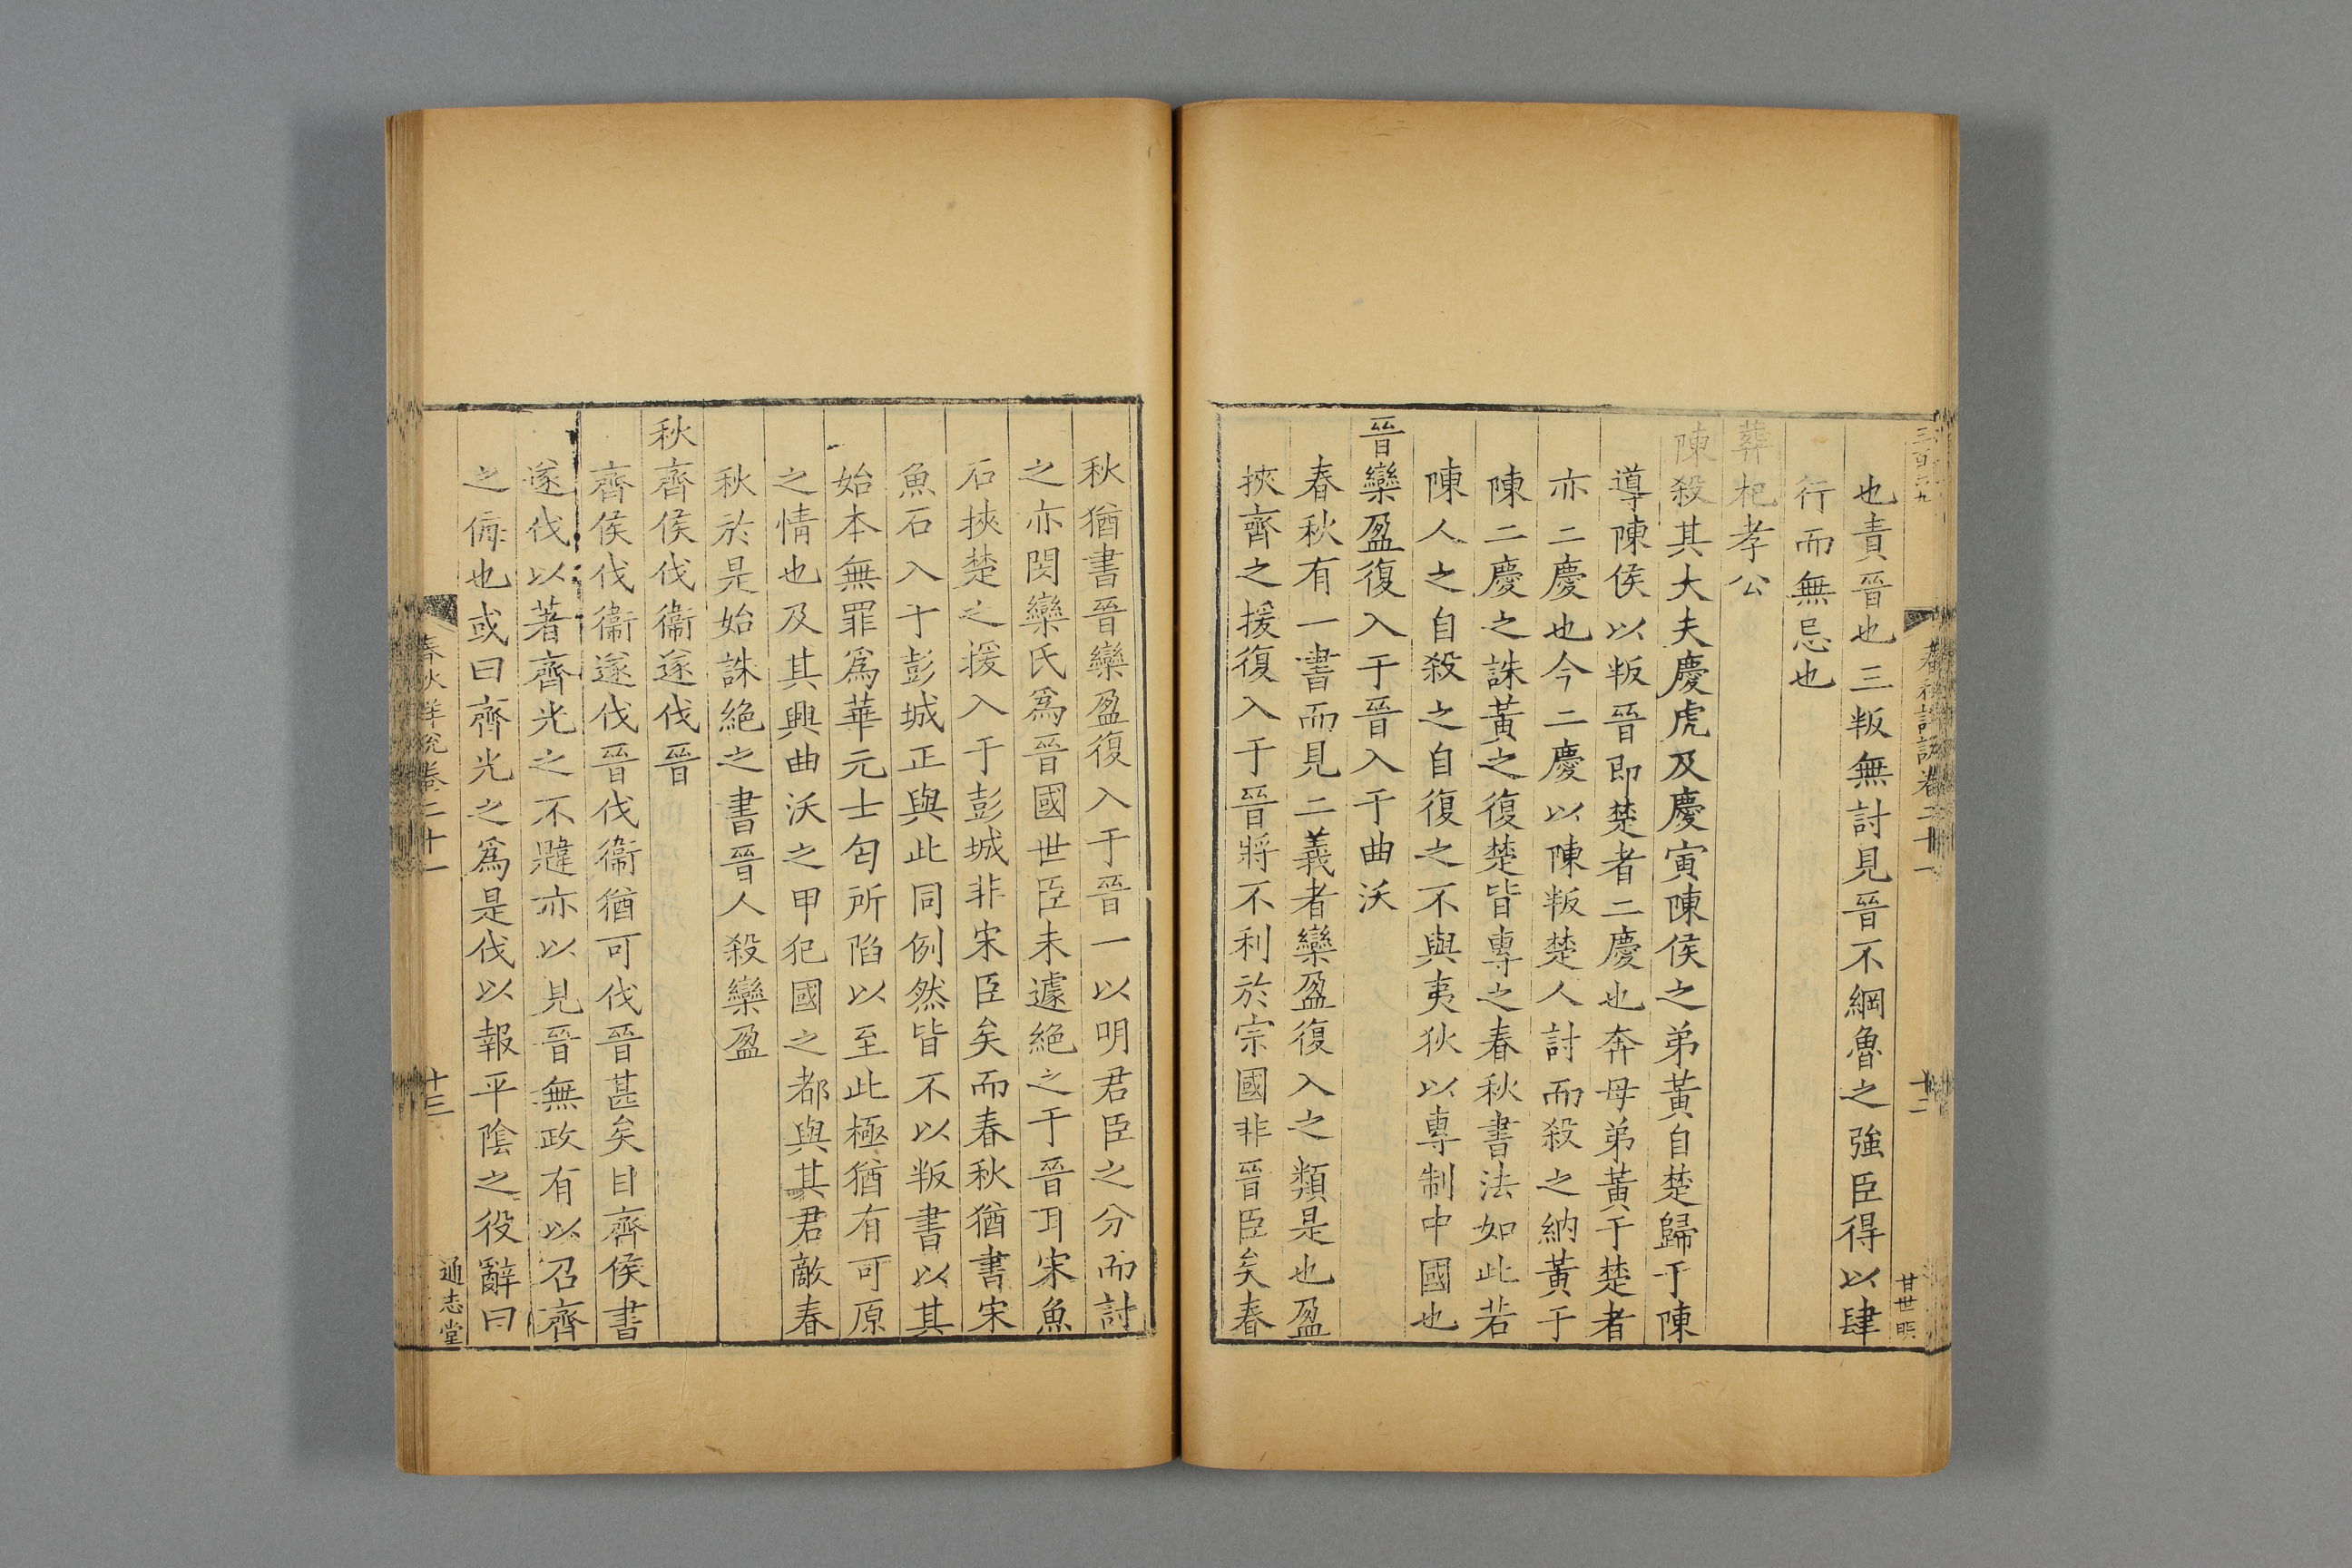 三百六九
春秋詳說卷二十一
十二
甘世明
也責晉也三叛無討見晉不綱魯之強臣得以肆
行而無忌也
葬杞孝公
陳殺其大夫慶虎及慶寅陳侯之弟黃自楚歸于陳
導陳侯以叛晉即楚者二慶也奔母弟黃于楚者
亦二慶也今二慶以陳叛楚人討而殺之納黃于
陳二慶之誅黃之復楚皆專之春秋書法如此若
陳人之自殺之自復之不與夷狄以專制中國也
晉欒盈復入于晉入于曲沃
春秋有一書而見二義者欒盈復入之類是也盈
挾齊之援復入于晉將不利於宗國非晉臣矣春
秋猶書晉欒盈復入于晉一以明君臣之分而討
之亦閔欒氏爲晉國世臣未遽絕之于晉耳宋魚
石挾楚之援入于彭城非宋臣矣而春秋猶書宋
魚石入于彭城正與此同例然皆不以叛書以其
始本無罪爲華元士匄所陷以至此極猶有可原
之情也及其興曲沃之甲犯國之都與其君敵春
秋於是始誅絕之書晉人殺欒盈
秋齊侯伐衞遂伐晉
齊侯伐衞遂伐晉伐衞猶可伐晉甚矣目齊侯書
遂伐以著齊光之不韙亦以見晉無政有以召齊
之侮也或曰齊光之爲是伐以報平陰之役辭曰
春秋詳說卷二十一
十三
通志堂